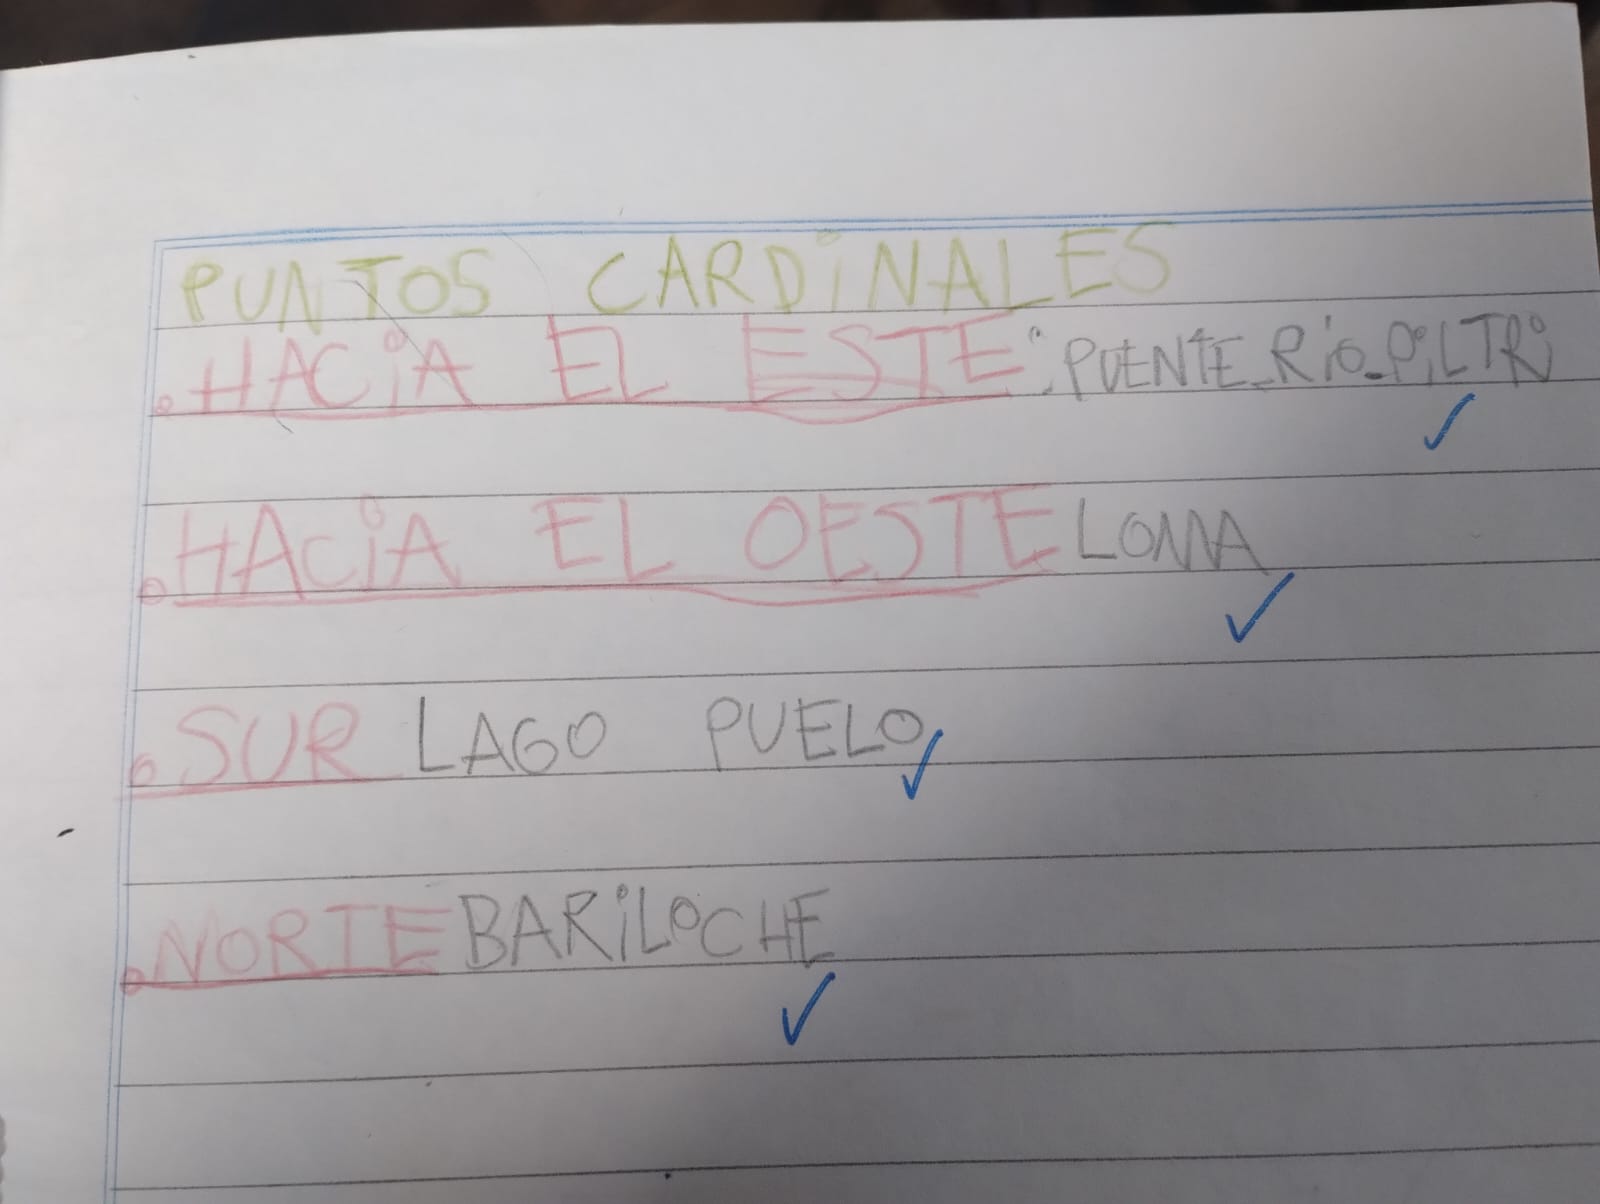 PUNTOS CARDiNALES
. HACiA EL ESTE: PUENTE RÍO PiLTRi
. HACiA EL OESTE LOMA
. SUR LAGO PUELO
. NORTE BARiLOCHE